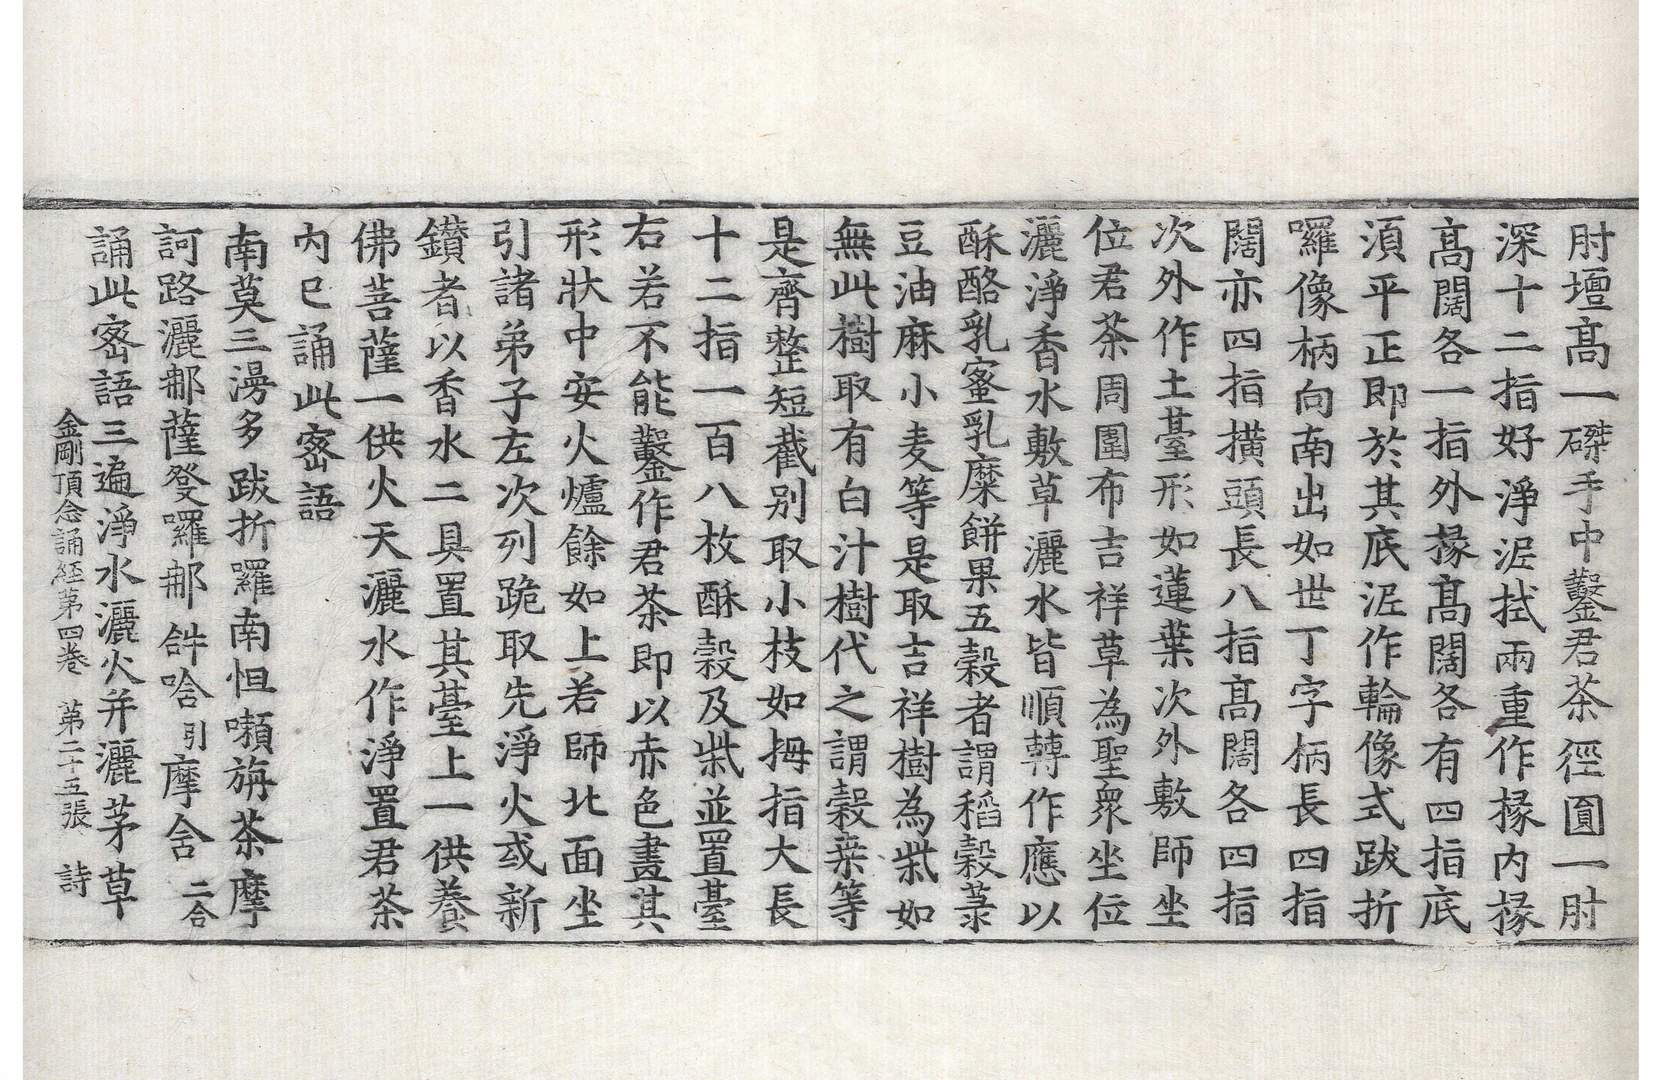 肘壇高一磔手中鑿君茶徑圓一肘
深十二指好淨泥拭兩重作椽內椽
高闊各一指外椽高闊各有四指底
湏平正即於其底泥作輪像式跋折
囉像柄向南出如世丁字柄長四指
闊亦四指撗頭長八指高闊各四指
次外作土臺形如蓮葉次外敷師坐
位君茶周圍布吉祥草為聖衆坐位
灑淨香水敷草灑水皆順轉作應以
酥酪乳蜜乳糜餅果五穀者謂稻穀菉
豆油麻小麦等是取吉祥樹為柴如
無此樹取有白汁樹代之謂穀桒等
是齊整短截別取小枝如拇指大長
十二指一百八枚酥穀及柴並置臺
右若不能鑿作君茶即以赤色畫其
形狀中安火爐餘如上若師北面坐
引諸弟子左次列跪取先淨火或新
鑚者以香水二具置其臺上一供養
佛菩薩一供火天灑水作淨置君茶
內已誦此密語
南莫三漫多跋折囉南怛囎旃茶摩
訶路灑郍薩癹囉郍𤙖唅引摩舍二合
誦此密語三遍淨水灑火并灑茅草
金剛頂念誦経苐四巻 苐二十五張 詩